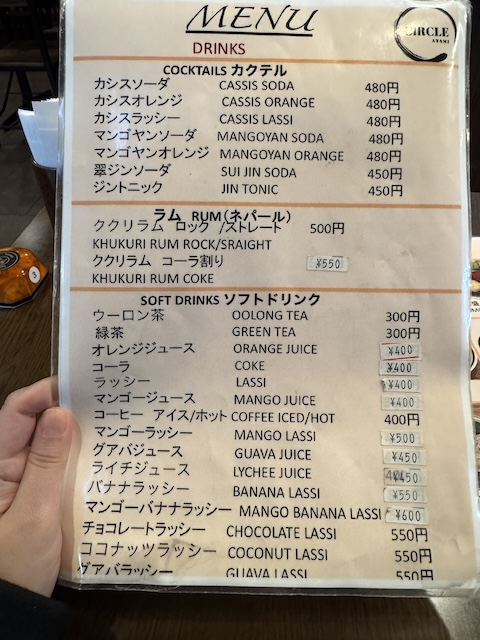 MENU
CIRCLE
ATAMI
DRINKS
COCKTAILS カクテル
カシスソーダ CASSIS SODA 480円
カシスオレンジ CASSIS ORANGE 480円
カシスラッシー CASSIS LASSI 480円
マンゴヤンソーダ MANGOYAN SODA 480円
マンゴヤンオレンジ MANGOYAN ORANGE 480円
翠ジンソーダ SUI JIN SODA 450円
ジントニック JIN TONIC 450円
ラム RUM(ネパール)
ククリラム ロック /ストレート 500円
KHUKURI RUM ROCK/SRAIGHT
ククリラム コーラ割り ¥550
KHUKURI RUM COKE
SOFT DRINKS ソフトドリンク
ウーロン茶 OOLONG TEA 300円
緑茶 GREEN TEA 300円
オレンジジュース ORANGE JUICE ¥400
コーラ COKE ¥400
ラッシー LASSI ¥400
マンゴージュース MANGO JUICE ¥400
コーヒー アイス/ホット COFFEE ICED/HOT 400円
マンゴーラッシー MANGO LASSI ¥500
グアバジュース GUAVA JUICE ¥450
ライチジュース LYCHEE JUICE ¥450
バナナラッシー BANANA LASSI ¥550
マンゴーバナナラッシー MANGO BANANA LASSI ¥600
チョコレートラッシー CHOCOLATE LASSI 550円
ココナッツラッシー COCONUT LASSI 550円
グアバラッシー GUAVA LASSI 550円